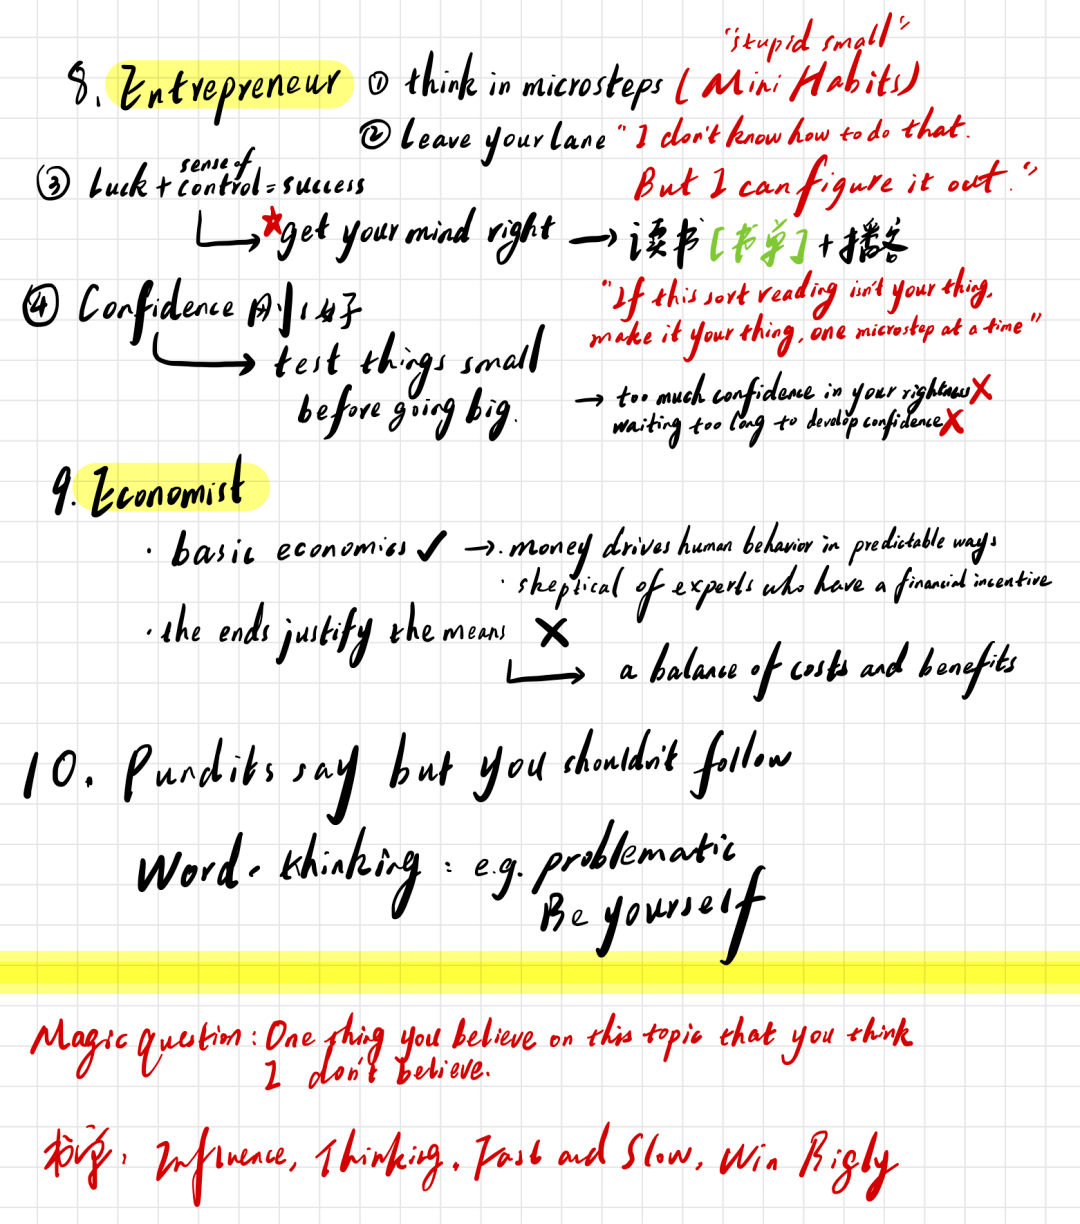 "stupid small"
8. Entrepreneur ① think in microsteps (Mini Habits)
② Leave your lane "I don't know how to do that.
But I can figure it out."
③ Luck + sense of control = success
★ get your mind right → 读书 [书单] + 播客
④ Confidence 刚好
"If this sort reading isn't your thing,
make it your thing, one microstep at a time"
→ test things small
before going big.
→ too much confidence in your rightness X
waiting too long to develop confidence X
9. Economist
· basic economics ✓ → · money drives human behavior in predictable ways
· skeptical of experts who have a financial incentive
· the ends justify the means X
→ a balance of costs and benefits
10. Pundits say but you shouldn't follow
Word-thinking : e.g. problematic
Be yourself
Magic question : One thing you believe on this topic that you think
I don't believe.
书单: Influence, Thinking, Fast and Slow, Win Bigly